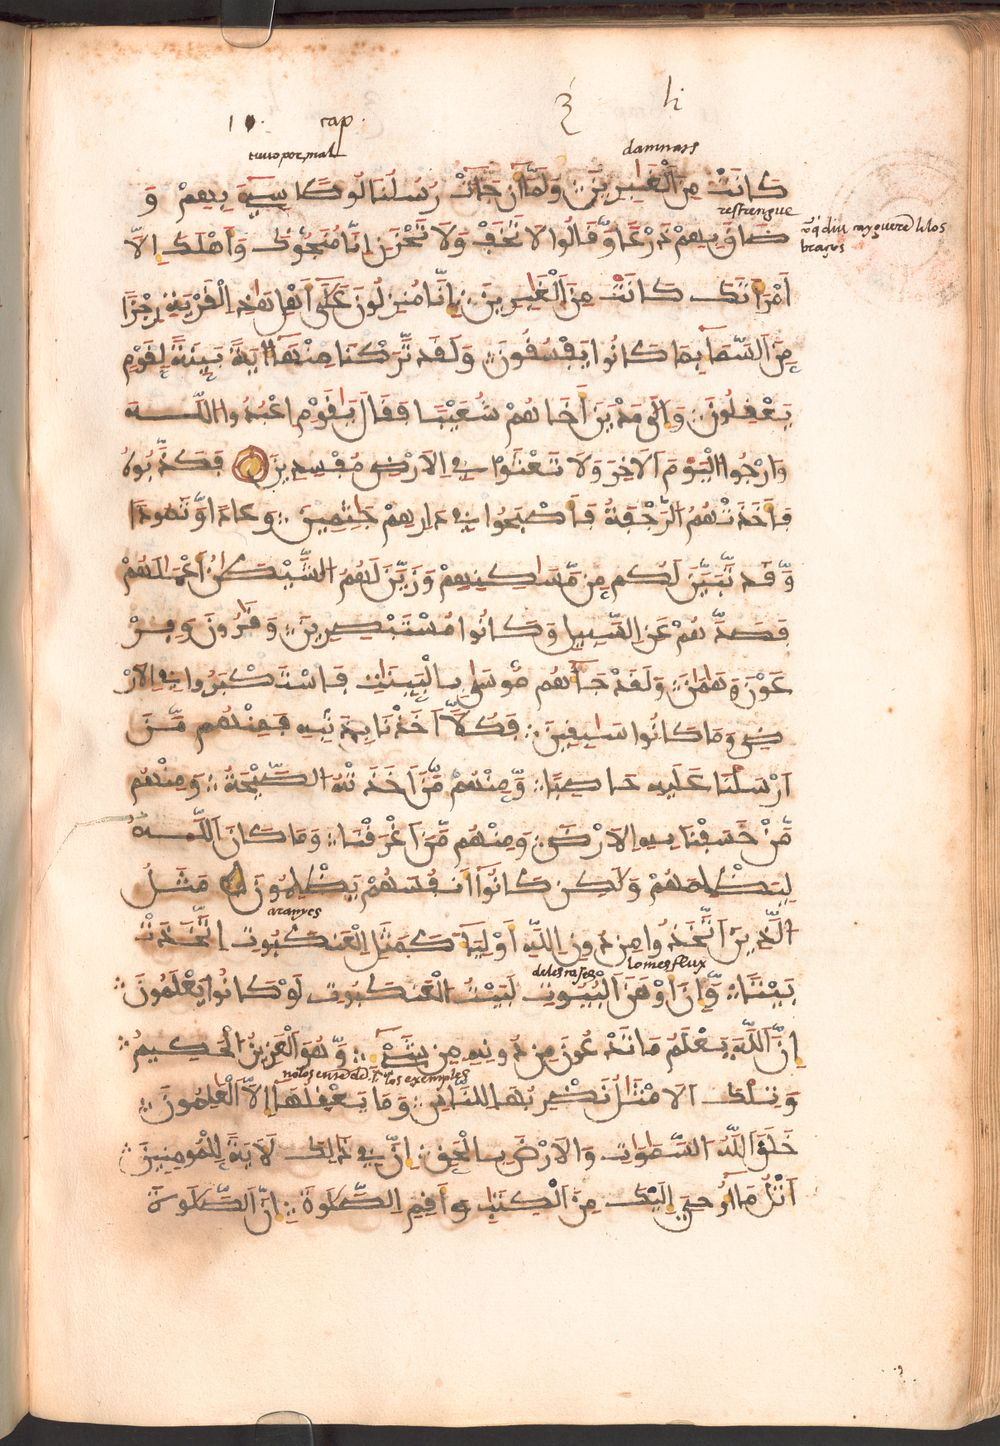 10. cap.
li
tuvo por mal
damnats
كَانَتْ مِنَ ٱلْغَٰبِرِينَ وَلَمَّآ أَن جَآءَتْ رُسُلُنَا لُوطًا سِيٓءَ بِهِمْ وَ
restrengue
ضَاقَ بِهِمْ ذَرْعًا وَّقَالُوا لَا تَخَفْ وَلَا تَحْزَنِ إِنَّا مُنَجُّوكَ وَأَهْلَكَ إِلَّا
braços
ٱمْرَأَتَكَ كَانَتْ مِنَ ٱلْغَٰبِرِينَ إِنَّا مُنزِلُونَ عَلَىٰٓ أَهْلِ هَٰذِهِ ٱلْقَرْيَةِ رِجْزًا
مِّنَ ٱلسَّمَآءِ بِمَا كَانُوا يَفْسُقُونَ وَلَقَد تَّرَكْنَا مِنْهَآ ءَايَةً بَيِّنَةً لِّقَوْمٍ
يَعْقِلُونَ وَإِلَىٰ مَدْيَنَ أَخَاهُمْ شُعَيْبًا فَقَالَ يَٰقَوْمِ ٱعْبُدُوا ٱللَّهَ
وَٱرْجُوا ٱلْيَوْمَ ٱلْأَخِرَ وَلَا تَعْثَوْا فِي ٱلْأَرْضِ مُفْسِدِينَ فَكَذَّبُوهُ
فَأَخَذَتْهُمُ ٱلرَّجْفَةُ فَأَصْبَحُوا فِي دَارِهِمْ جَٰثِمِينَ وَعَادًا وَّثَمُودًا
وَّقَد تَّبَيَّنَ لَكُم مِّن مَّسَٰكِنِهِمْ وَزَيَّنَ لَهُمُ ٱلشَّيْطَٰنُ أَعْمَٰلَهُمْ
فَصَدَّهُمْ عَنِ ٱلسَّبِيلِ وَكَانُوا مُسْتَبْصِرِينَ وَقَٰرُونَ وَفِرْ
عَوْنَ وَهَٰمَٰنَ وَلَقَدْ جَآءَهُم مُّوسَىٰ بِٱلْبَيِّنَٰتِ فَٱسْتَكْبَرُوا فِي ٱلْأَرْ
ضِ وَمَا كَانُوا سَٰبِقِينَ فَكُلًّا أَخَذْنَا بِذَنبِهِ فَمِنْهُم مَّنَ
أَرْسَلْنَا عَلَيْهِ حَاصِبًا وَّمِنْهُم مَّنَ أَخَذَتْهُ ٱلصَّيْحَةُ وَمِنْهُم
مَّنْ خَسَفْنَا بِهِ ٱلْأَرْضَ وَمِنْهُم مَّنَ أَغْرَقْنَا وَمَا كَانَ ٱللَّهُ
لِيَظْلِمَهُمْ وَلَٰكِن كَانُوٓا أَنفُسَهُمْ يَظْلِمُونَ مَثَلُ
aranyes
ٱلَّذِينَ ٱتَّخَذُوا مِن دُونِ ٱللَّهِ أَوْلِيَآءَ كَمَثَلِ ٱلْعَنكَبُوتِ ٱتَّخَذَتْ
de les cases lo mes flux
بَيْتًا وَّإِنَّ أَوْهَنَ ٱلْبُيُوتِ لَبَيْتُ ٱلْعَنكَبُوتِ لَوْ كَانُوا يَعْلَمُونَ
إِنَّ ٱللَّهَ يَعْلَمُ مَا تَدْعُونَ مِن دُونِهِ مِن شَيْءٍ وَّهُوَ ٱلْعَزِيزُ ٱلْحَكِيمُ
los exemples
وَتِلْكَ ٱلْأَمْثَٰلُ نَضْرِبُهَا لِلنَّاسِ وَمَا يَعْقِلُهَآ إِلَّا ٱلْعَٰلِمُونَ
خَلَقَ ٱللَّهُ ٱلسَّمَٰوَٰتِ وَٱلْأَرْضَ بِٱلْحَقِّ إِنَّ فِي ذَٰلِكَ لَأَيَةً لِّلْمُومِنِينَ
ٱتْلُ مَآ أُوحِيَ إِلَيْكَ مِنَ ٱلْكِتَٰبِ وَأَقِمِ ٱلصَّلَوٰةَ إِنَّ ٱلصَّلَوٰةَ